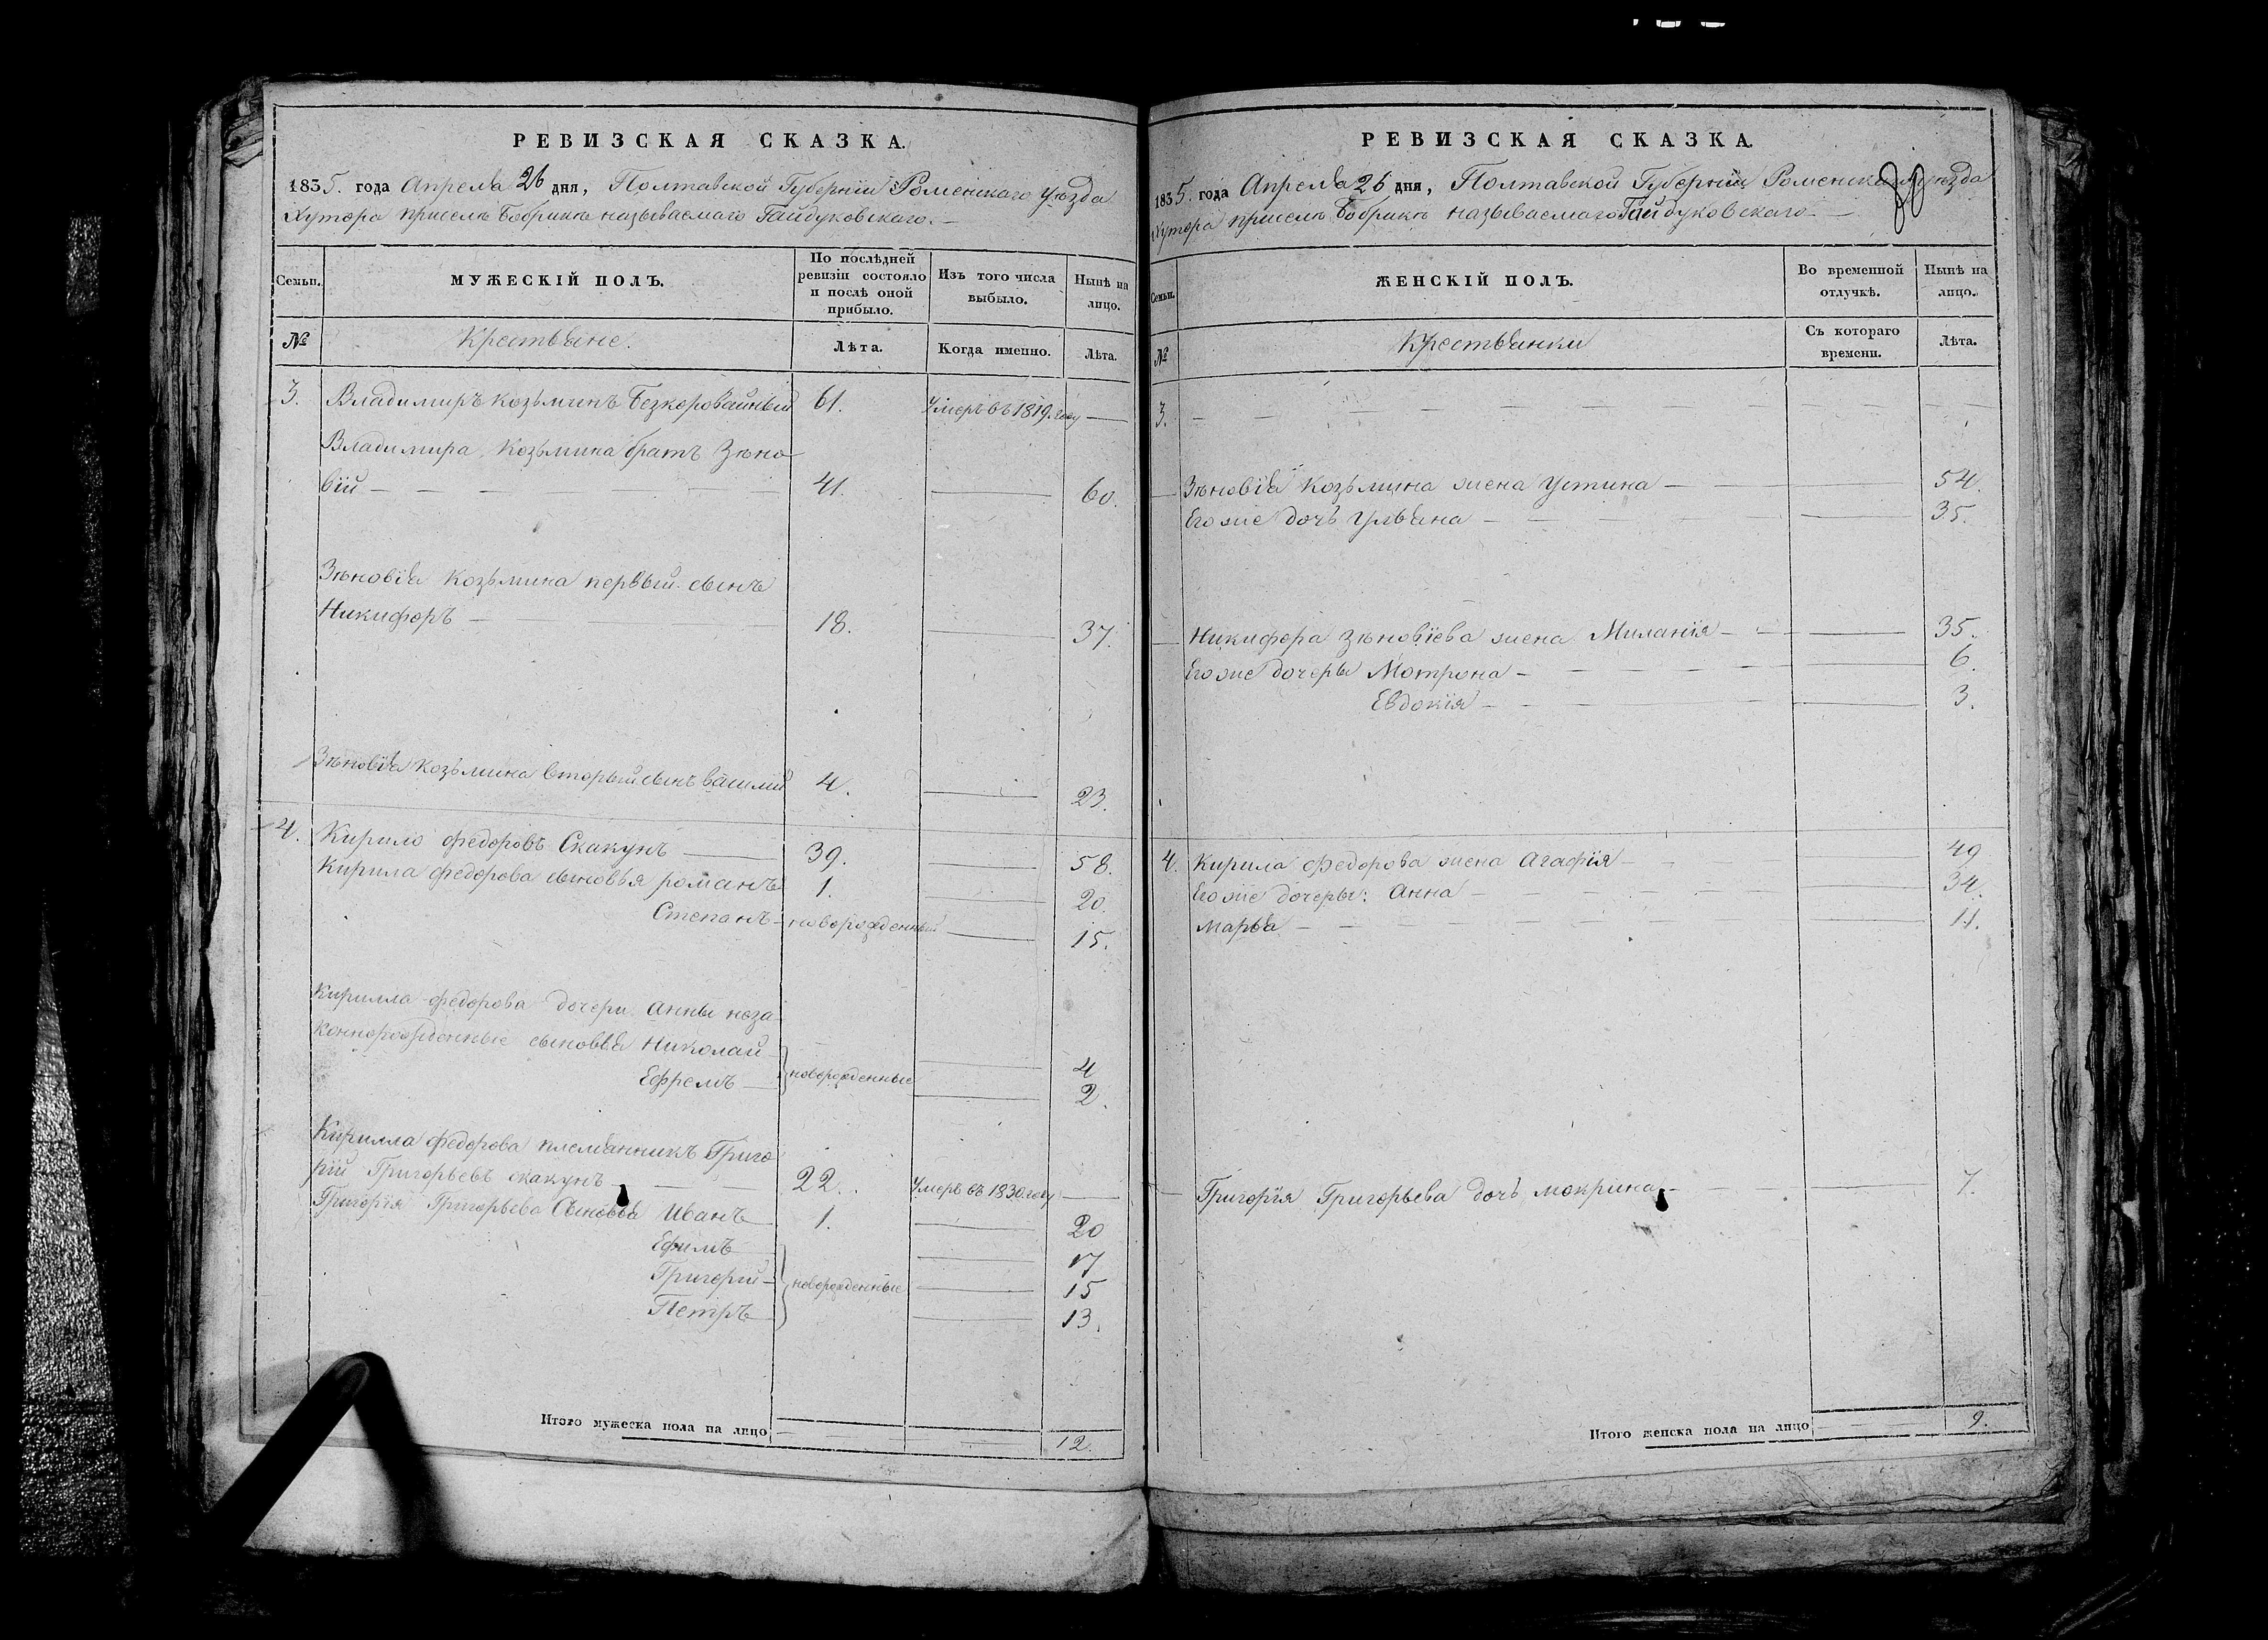 РЕВИЗСКАЯ СКАЗКА.
1835. года Апреля 26 дня, Полтавской Губерніи Роменскаго уѣзда
Хутора присемъ Бобрикъ называемаго Гайдуковскаго. —
Семьи. МУЖЕСКІЙ ПОЛЪ. По послѣдней ревизіи состояло и послѣ оной прибыло. Изъ того числа выбыло. Нынѣ на лицо.
№ Крестьяне. Лѣта. Когда именно. Лѣта.
3. Владимиръ Козьминъ Безкоровайный 61. Умеръ въ 1819. году —
Владимира Козьмина братъ Зѣно
вій — 41. — 60.
Зѣновія Козьмина первый сынъ
Никифоръ — 18. — 37.
Зѣновія Козьмина вторый сынъ Василий 4. — 23.
4. Кирило Федоровъ Скакунъ — 39. — 58.
Кирила Федорова сыновья Романъ 1. — 20.
Степанъ — новорожденный — 15.
Кирилла Федорова дочери Анны неза
коннорожденные сыновья Николай — новорожденные — 4
Ефремъ — — 2.
Кирилла Федорова племянникъ Григо
рій Григорьевъ Скакунъ — 22. Умеръ въ 1830. году —
Григорія Григорьева Сыновья Иванъ 1. — 20
Ефимъ — — 17
Григорий — новорожденные — 15
Петръ — — 13.
Итого мужеска пола на лицо — — 12.
РЕВИЗСКАЯ СКАЗКА.
1835. года Апреля 26 дня, Полтавской Губерніи Роменскаго уѣзда
Хутора присемъ Бобрикъ называемаго Гайдуковскаго —
Семьи. ЖЕНСКІЙ ПОЛЪ. Во временной отлучкѣ. Нынѣ на лицо.
№ Крестьянки Съ котораго времени. Лѣта.
3. —
Зѣновія Козьмина жена Устина — — 54.
Его же дочь Ульяна — — 35.
Никифора Зѣновіева жена Миланія — — 35.
Его же дочеры Мотрона — — 6.
Евдокія — — 3.
4. Кирила Федорова жена Агафія — — 49
Его же дочеры: Анна — — 34.
Марья — — 11.
Григорія Григорьева дочь Мокрина — — 7.
Итого женска пола на лицо — 9.